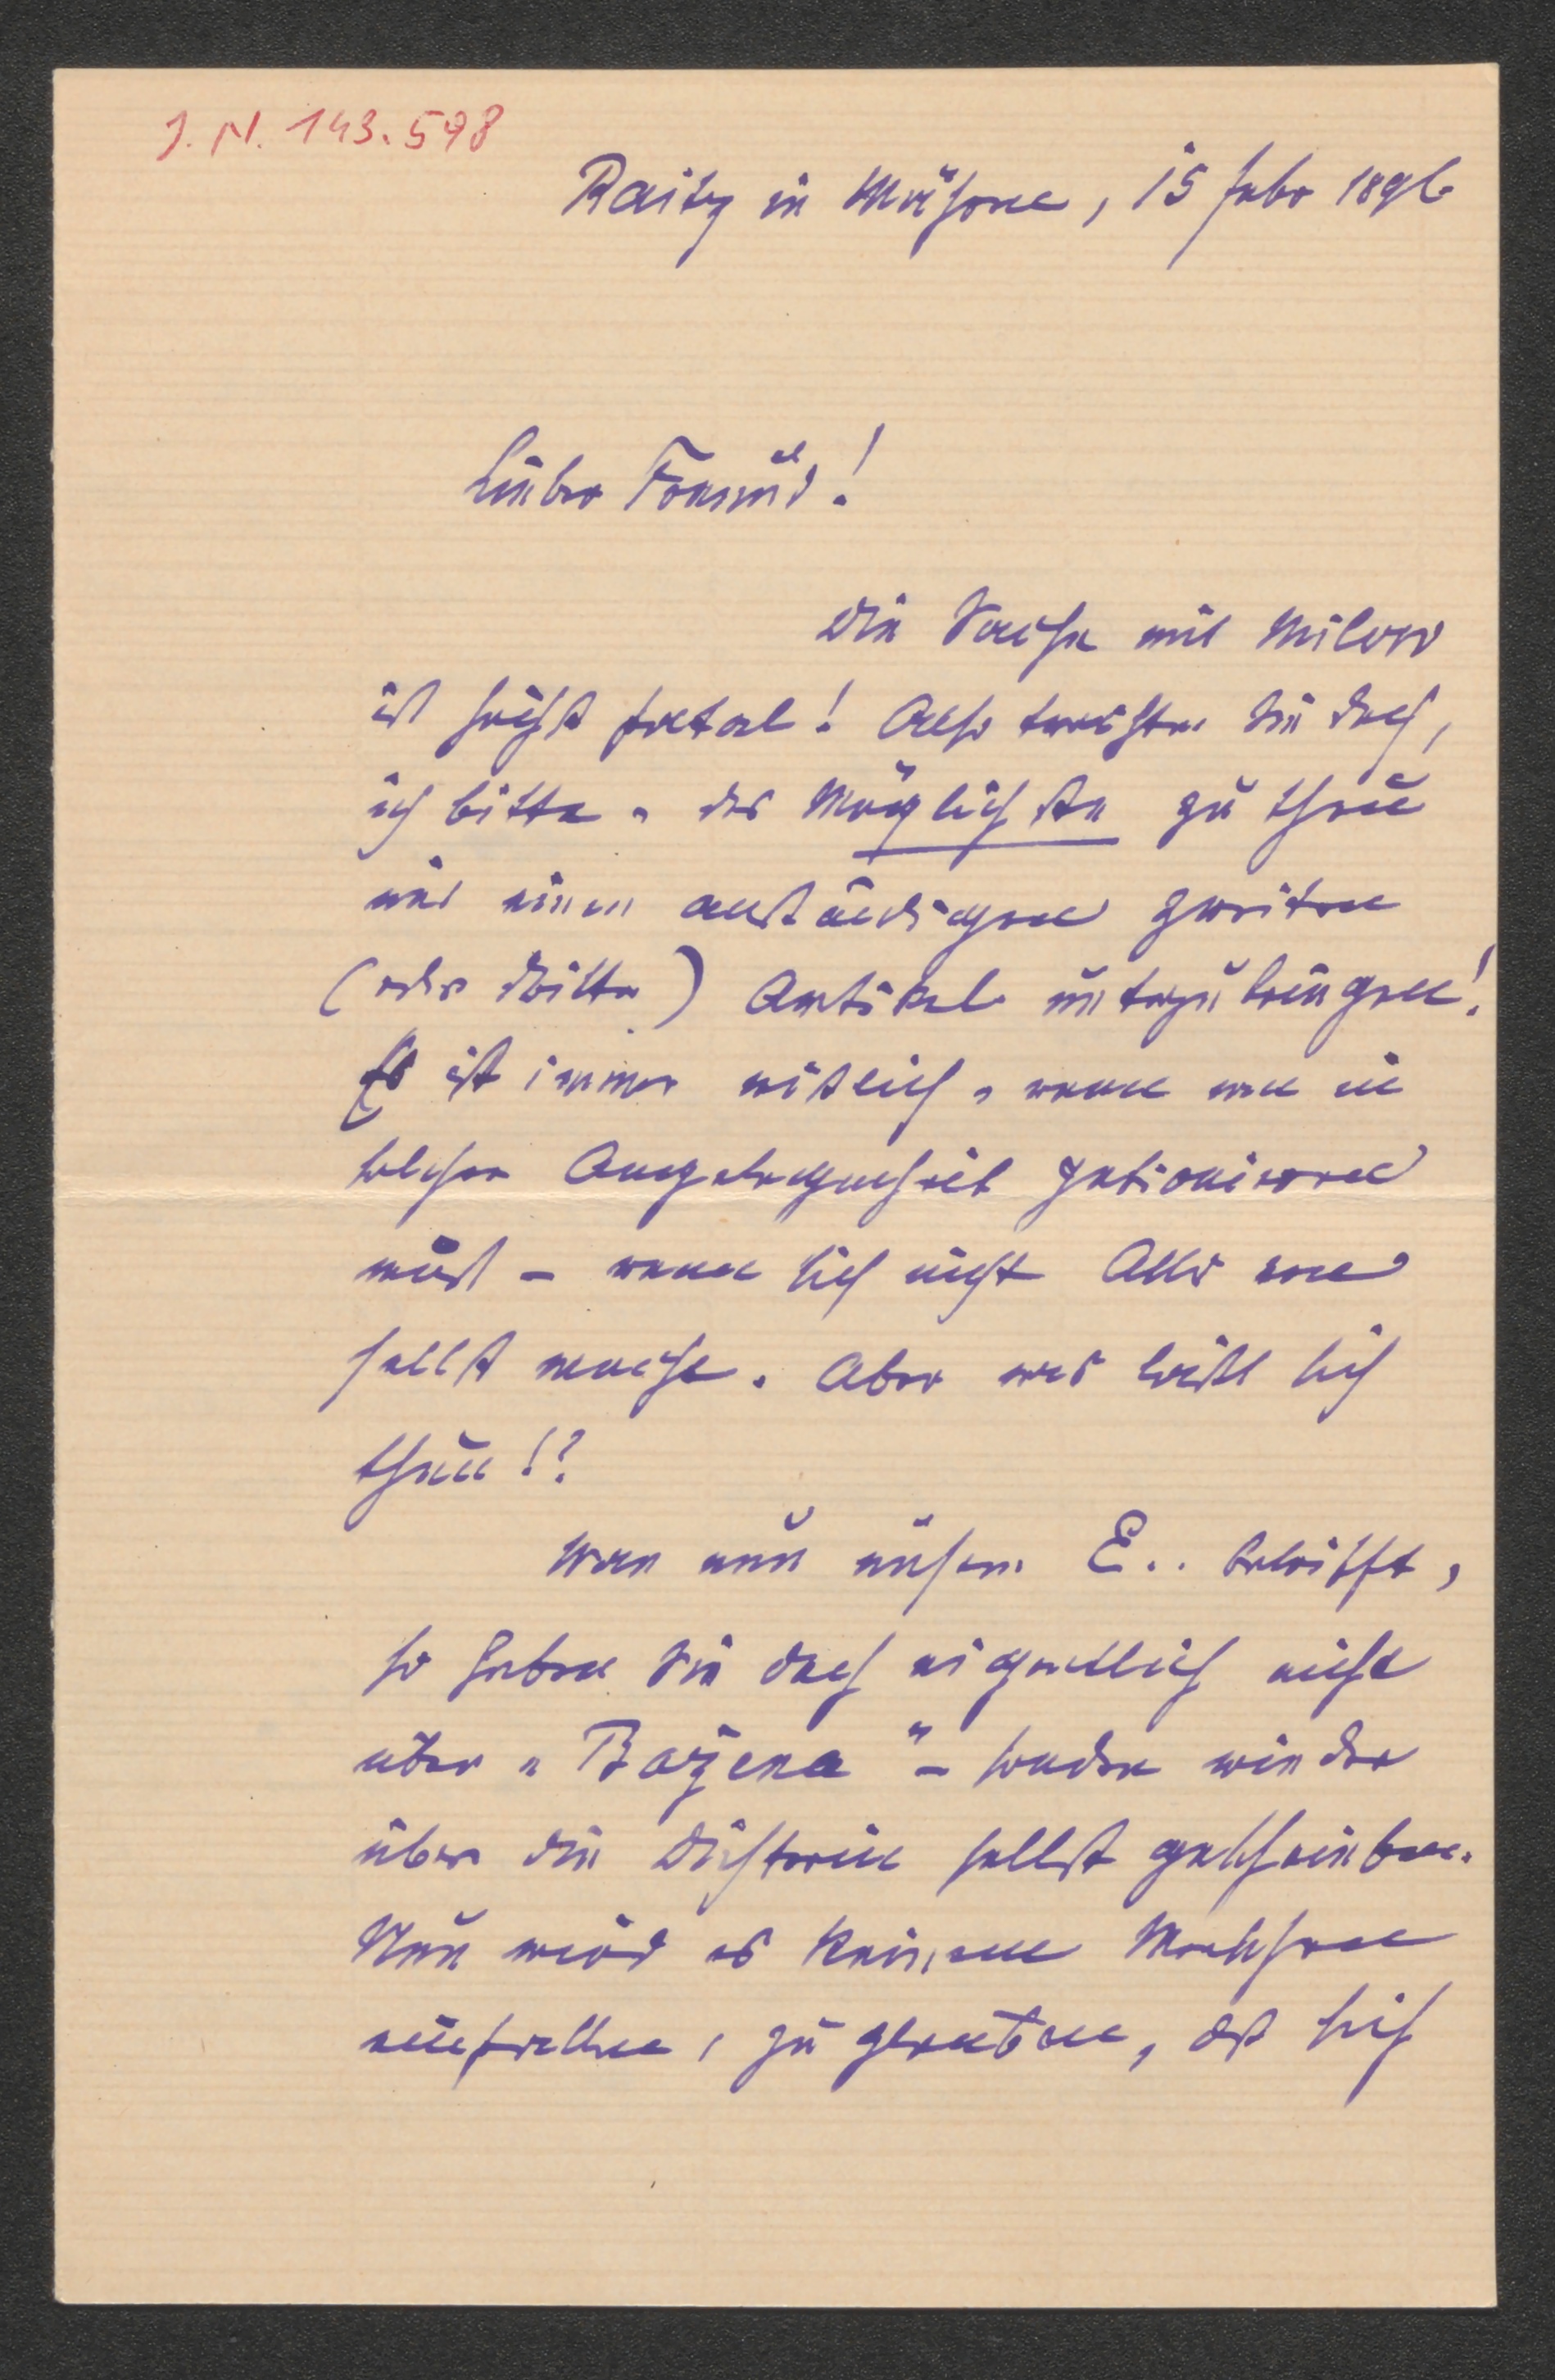 J. N. 143.598
Raitz in Mähren, 15 Febr 1896
Lieber Freund!
Die Sache mit Milow
ist höchst fatal! Also trachten Sie doch,
ich bitte, das Möglichste zu thun
und einen anständigen zweiten
(oder dritten) Artikel unterzubringen!
Es ist immer mißlich, wenn man in
solcher Angelegenheit petioniren
muß – wenn sich nicht Alles von
selbst macht. Aber was läßt sich
thun!?
Was nun unsere E.. betrifft,
so haben Sie doch eigentlich nicht
über „Božena" – sondern wieder
über die Dichterin selbst geschrieben.
Nun wird es keinem Menschen
einfallen, zu glauben, daß sich